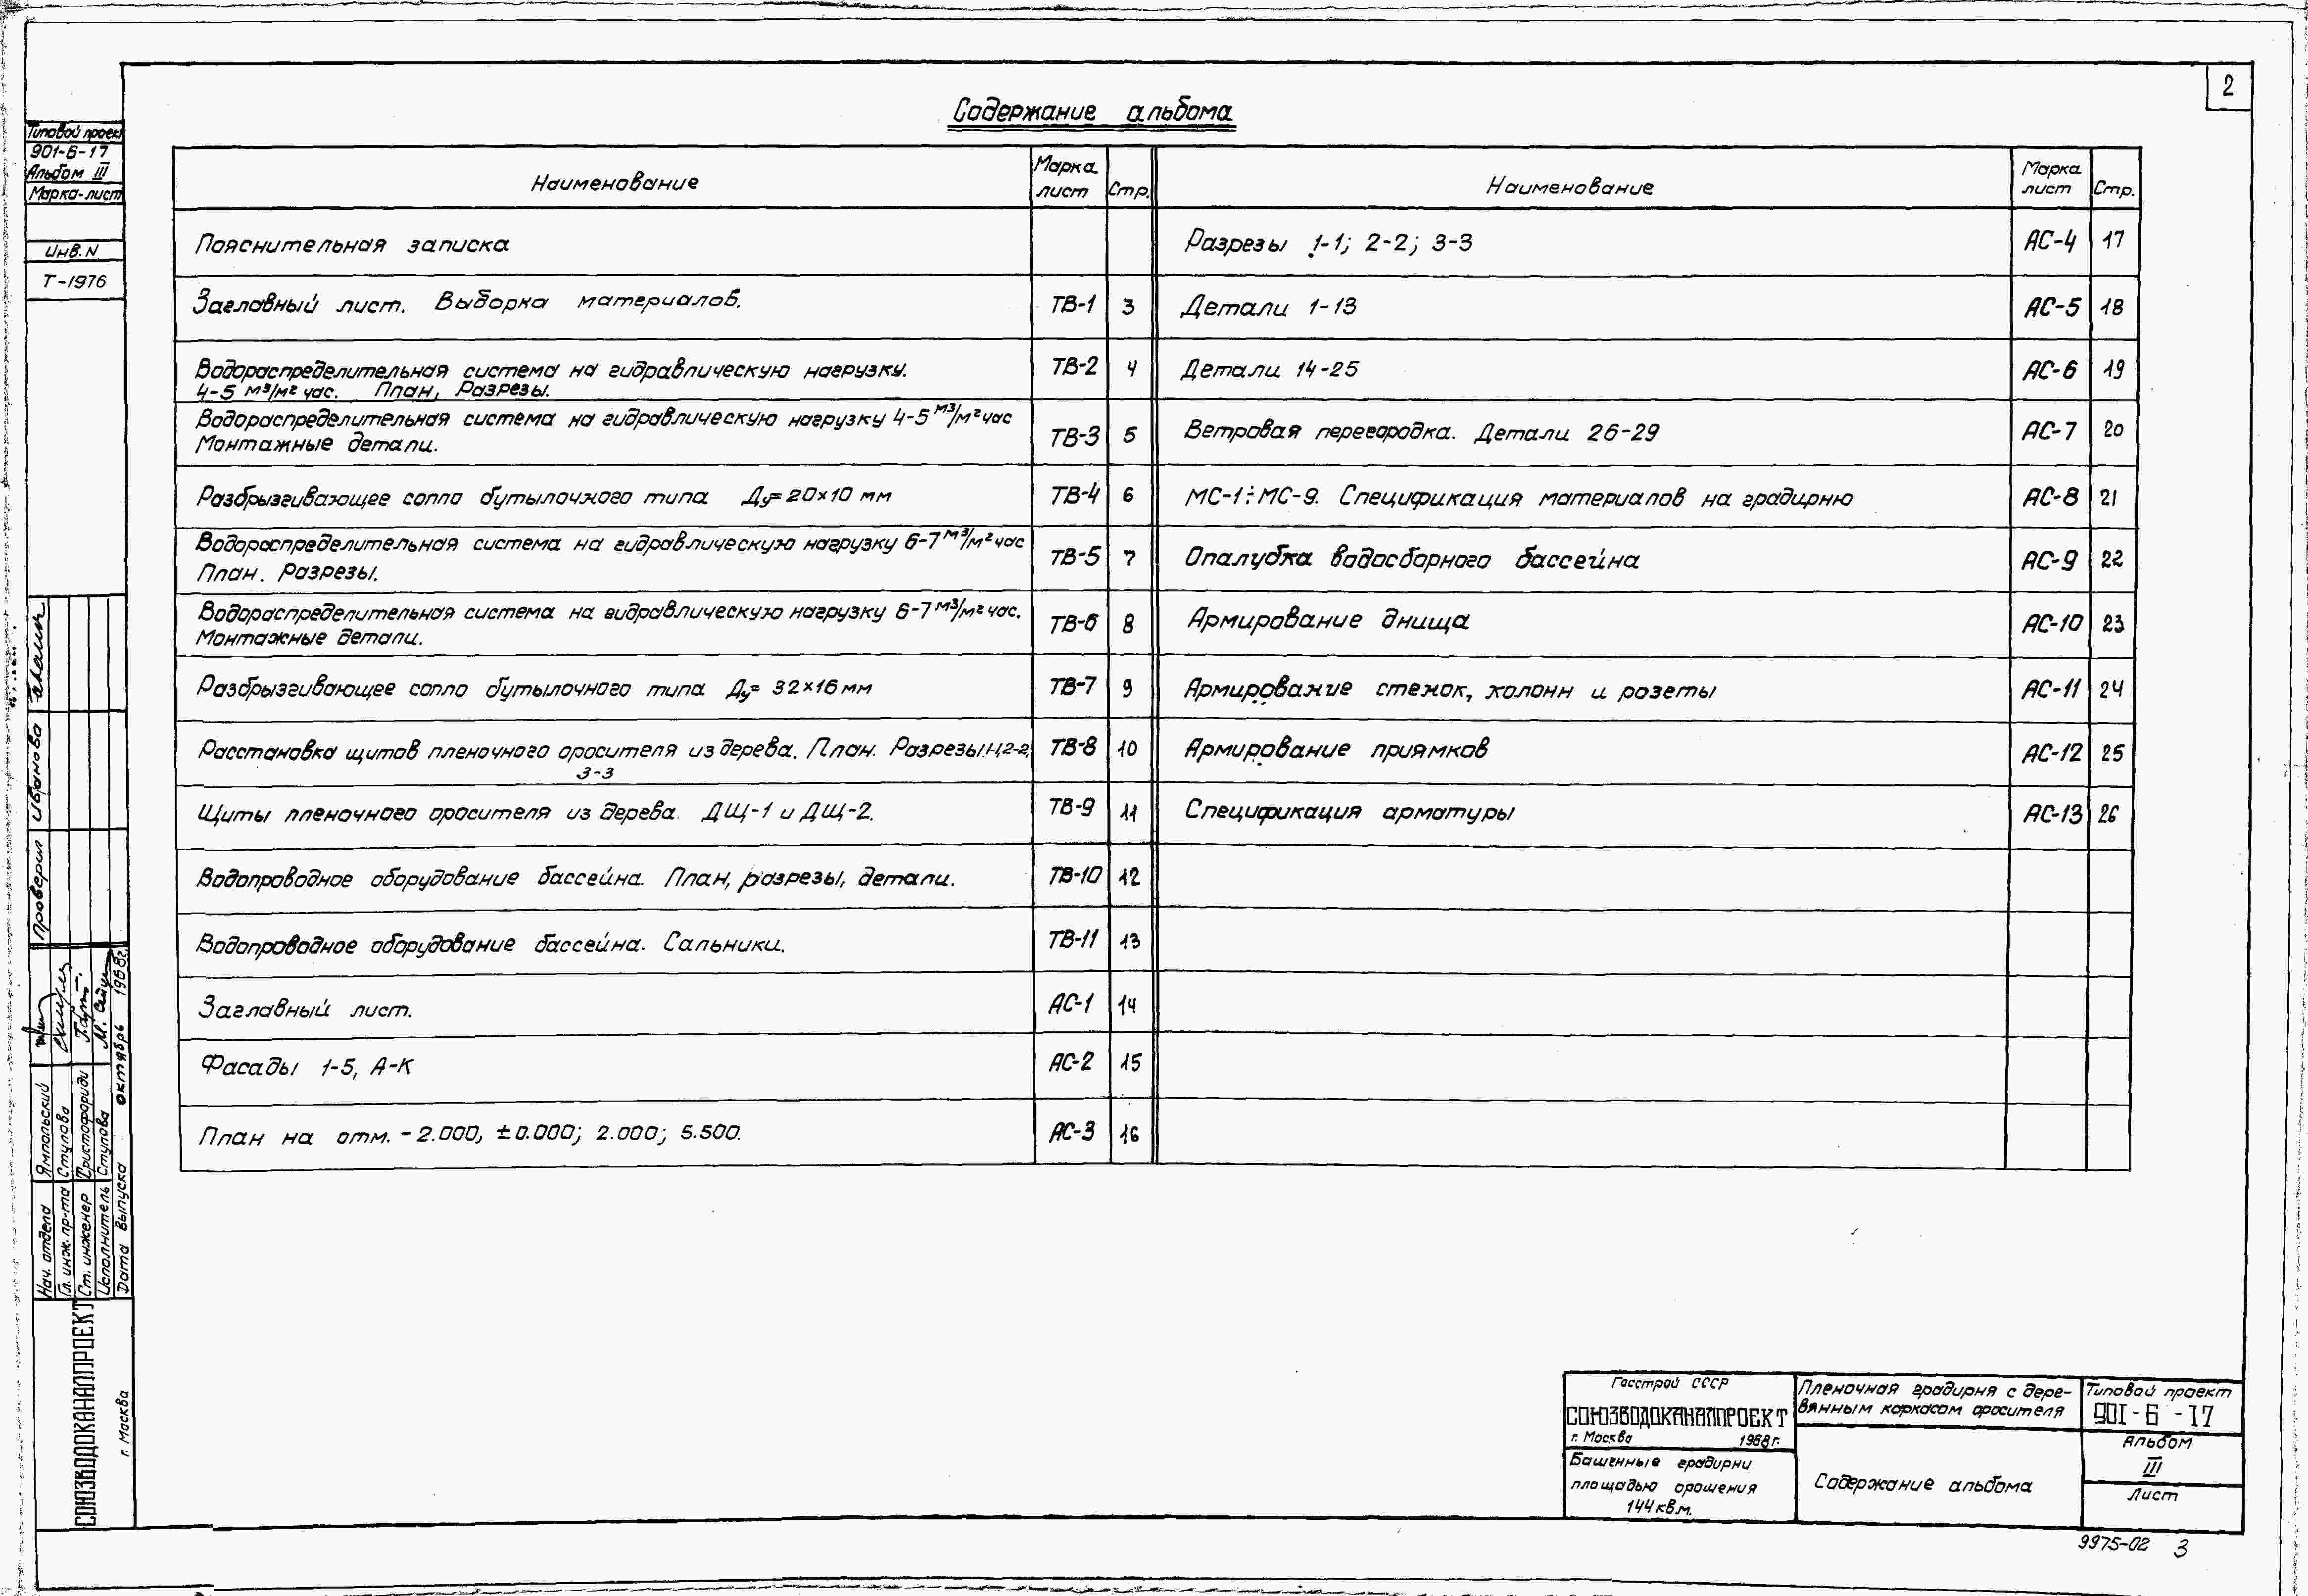 2
Содержание альбома
Типовой проект
901-6-17
Альбом III
Марка-лист
Инв. N
Т-1976
Наименование Марка лист Стр.
Пояснительная записка
Заглавный лист. Выборка материалов. ТВ-1 3
Водораспределительная система на гидравлическую нагрузку.
4-5 м³/м² час. План, Разрезы. ТВ-2 4
Водораспределительная система на гидравлическую нагрузку 4-5 м³/м² час
Монтажные детали. ТВ-3 5
Разбрызгивающее сопло бутылочного типа Ду=20×10 мм ТВ-4 6
Водораспределительная система на гидравлическую нагрузку 6-7 м³/м² час
План. Разрезы. ТВ-5 7
Водораспределительная система на гидравлическую нагрузку 6-7 м³/м² час.
Монтажные детали. ТВ-6 8
Разбрызгивающее сопло бутылочного типа Ду= 32×16 мм ТВ-7 9
Расстановка щитов пленочного оросителя из дерева. План. Разрезы 1-1, 2-2,
3-3 ТВ-8 10
Щиты пленочного оросителя из дерева. ДЩ-1 и ДЩ-2. ТВ-9 11
Водопроводное оборудование бассейна. План, разрезы, детали. ТВ-10 12
Водопроводное оборудование бассейна. Сальники. ТВ-11 13
Заглавный лист. АС-1 14
Фасады 1-5, А-К АС-2 15
План на отм. -2.000, ±0.000; 2.000; 5.500. АС-3 16
Наименование Марка лист Стр.
Разрезы 1-1; 2-2; 3-3 АС-4 17
Детали 1-13 АС-5 18
Детали 14-25 АС-6 19
Ветровая перегородка. Детали 26-29 АС-7 20
МС-1÷МС-9. Спецификация материалов на градирню АС-8 21
Опалубка водосборного бассейна АС-9 22
Армирование днища АС-10 23
Армирование стенок, колонн и розеты АС-11 24
Армирование приямков АС-12 25
Спецификация арматуры АС-13 26
Проверил Иванова
Нач. отдела Ямпольский
Гл. инж. пр-та Стулова
Ст. инженер Христофориди
Исполнитель Стулова
Дата выпуска октябрь 1968г.
СОЮЗВОДОКАНАЛПРОЕКТ
г. Москва
Госстрой СССР
СОЮЗВОДОКАНАЛПРОЕКТ
г. Москва 1968г.
Башенные градирни
площадью орошения
144 кв.м.
Пленочная градирня с дере-
вянным каркасом оросителя
Содержание альбома
Типовой проект
901-6-17
Альбом
III
Лист
9975-02 3